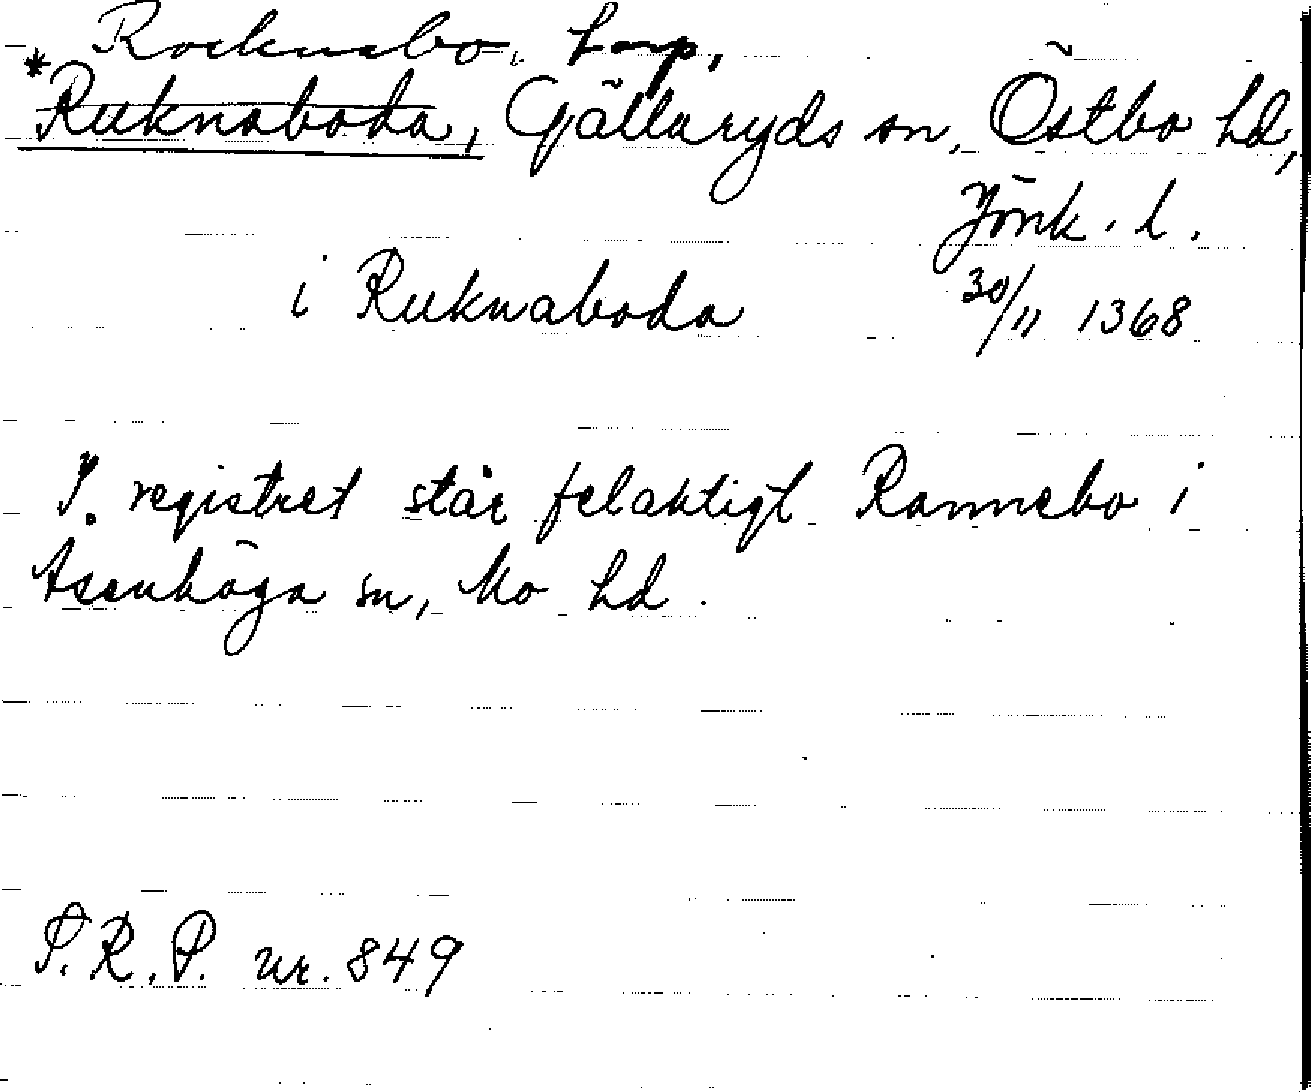 * Rocknebo. torp,
Ruknaboda, Gällaryds sn, Östbo hd,
Jönk. l.
i Ruknaboda 30/11 1368
I registret står felaktigt Rannebo i
Åsenhöga sn, Mo hd.
S.R.P. nr. 849